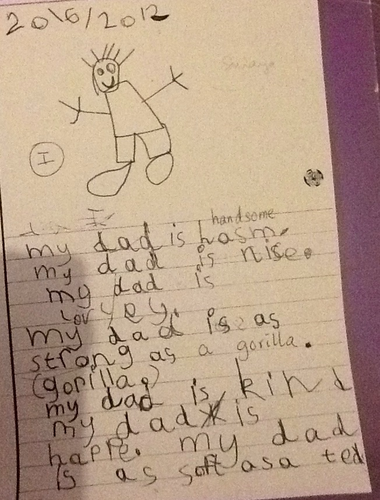 20\6/2012
I
handsome
my dad is hasm.
my dad is nise.
my dad is
lovyey.
my dad is as
strong as a gorilla.
(gorilla)
my dad is kind
my dad is
happe. my dad
is as soft as a ted